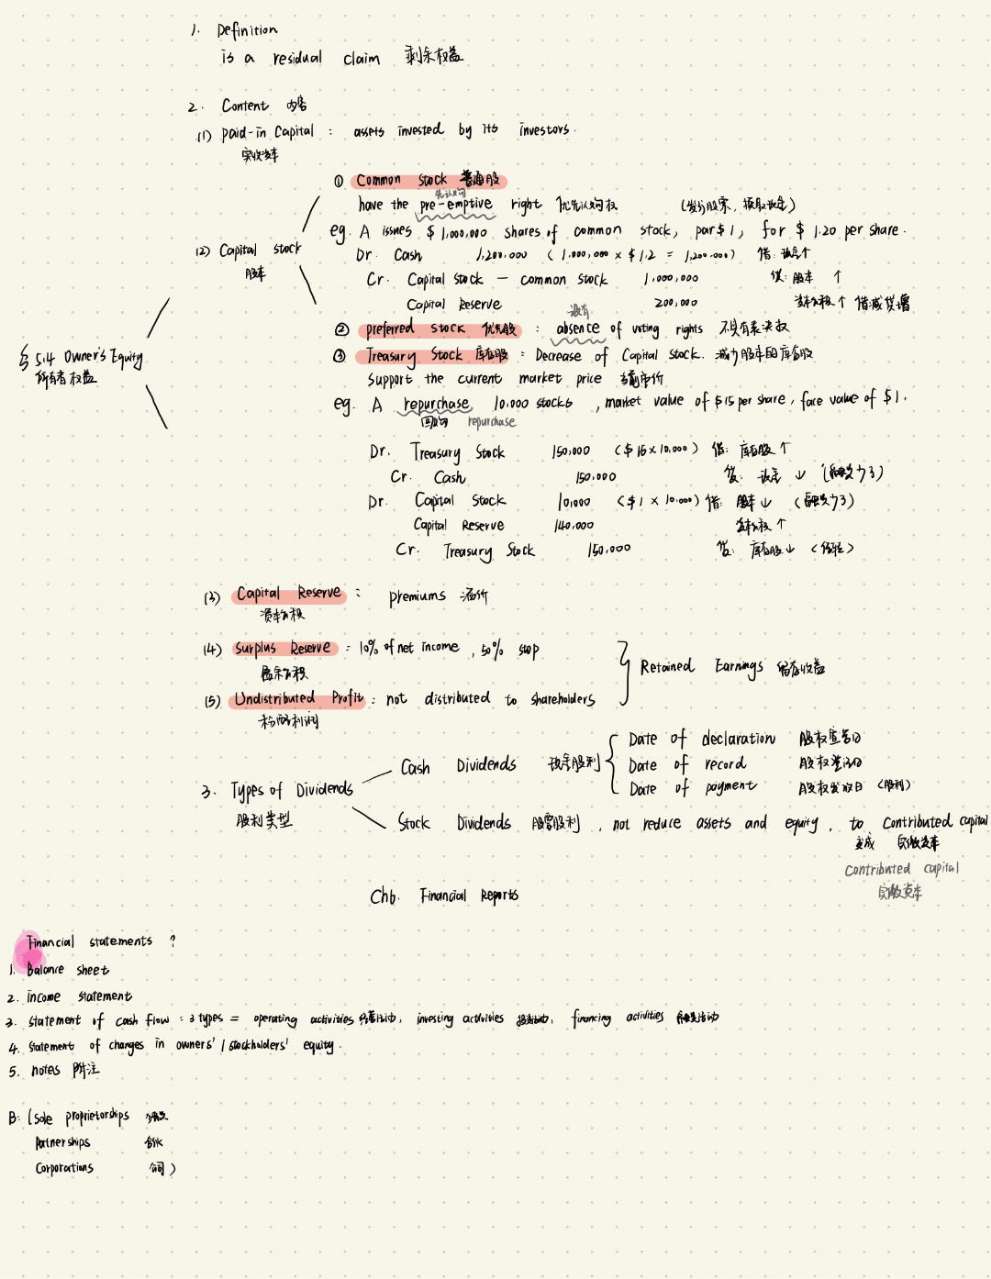 1. Definition
is a residual claim 剩余权益
2. Content 内容
(1) paid-in Capital : assets invested by its investors.
实收资本
① Common Stock 普通股
优先认购
have the pre-emptive right 优先认购权 (发行股票, 换取现金)
eg. A issues $1,000,000 shares of common stock, par $1, for $1.20 per share.
(2) Capital stock
股本
Dr. Cash 1,200,000 (1,000,000 × $1.2 = 1,200,000) 借: 现金↑
Cr. Capital Stock — common stock 1,000,000 贷: 股本 ↑
Capital Reserve 200,000 资本公积↑ 借减贷增
没有
② preferred stock 优先股 : absence of voting rights 不具有表决权
§5.4 Owner's Equity
所有者权益
③ Treasury Stock 库存股 : Decrease of Capital Stock. 减少股本的库存股
support the current market price 当前市价
eg. A repurchase 10,000 stocks , market value of $15 per share, face value of $1.
回购 repurchase
Dr. Treasury Stock 150,000 ($15×10,000) 借: 库存股↑
Cr. Cash 150,000 贷: 现金↓
Dr. Capital Stock 10,000 ($1×10,000) 借: 股本↓
Capital Reserve 140,000 资本公积↑
Cr. Treasury Stock 150,000 贷: 库存股↓
(3) Capital Reserve : premiums 溢价
资本公积
(4) Surplus Reserve : 10% of net income, 50% stop
盈余公积
Retained Earnings 留存收益
(5) Undistributed Profit : not distributed to shareholders
未分配利润
3. Types of Dividends
股利类型
Cash Dividends 现金股利
Date of declaration 股权宣告日
Date of record 股权登记日
Date of payment 股权发放日 (股利)
Stock Dividends 股票股利 , not reduce assets and equity, to contributed capital
变成 实缴资本
contributed capital
实缴资本
Ch6. Financial Reports
Financial statements ?
1. Balance sheet
2. income statement
3. statement of cash flow : 3 types = operating activities 经营活动, investing activities 投资活动, financing activities 融资活动
4. statement of changes in owners' / stockholders' equity.
5. notes 附注
B: (sole proprietorships 独资
Partnerships 合伙
Corporations 公司)